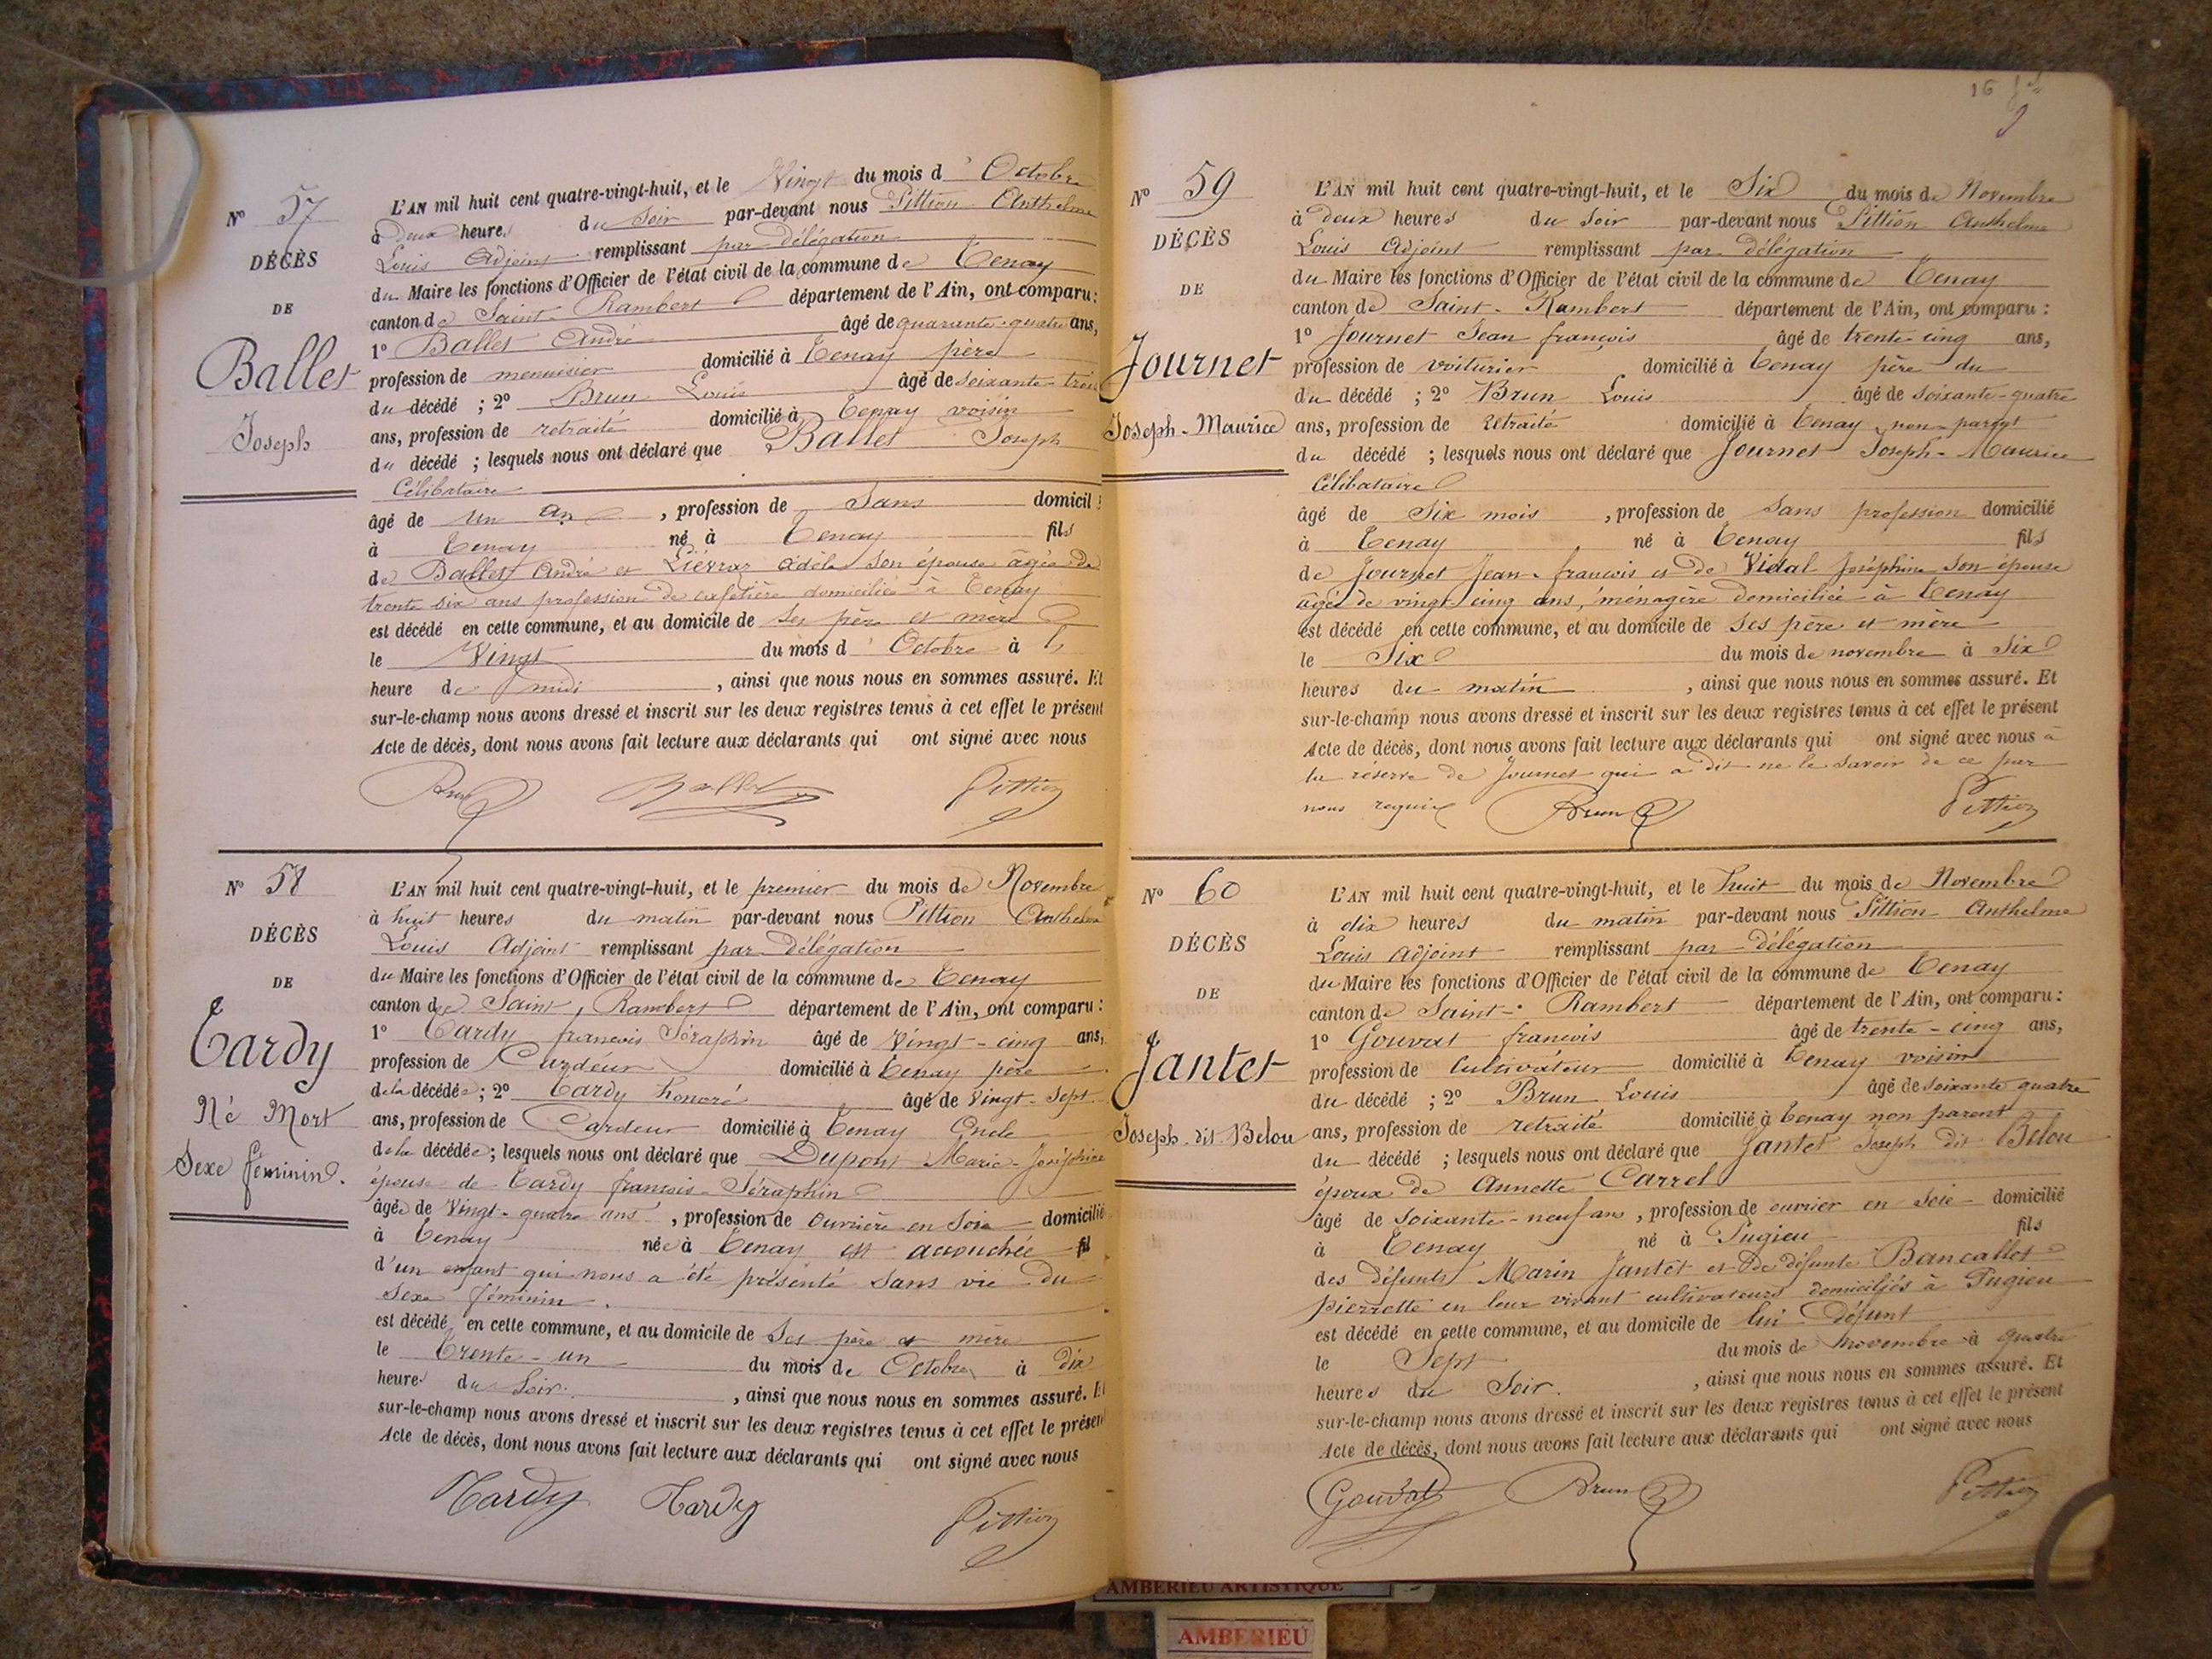 N° 57
DÉCÈS
DE
Ballet
Joseph
L'AN mil huit cent quatre-vingt-huit, et le Vingt du mois d' Octobre
à Deux heures du Soir par-devant nous Pittion Anthelme
Louis Adjoint remplissant par délégation
du Maire les fonctions d'Officier de l'état civil de la commune de Tenay
canton de Saint-Rambert département de l'Ain, ont comparu :
1° Ballet André âgé de quarante-quatre ans,
profession de menuisier domicilié à Tenay père
du décédé ; 2° Brun Louis âgé de soixante-trois
ans, profession de retraité domicilié à Tenay voisin
du décédé ; lesquels nous ont déclaré que Ballet Joseph
Célibataire
âgé de un an , profession de Sans domicilié
à Tenay né à Tenay fils
de Ballet André et Liévraz Adèle son épouse âgée de
trente six ans profession de cafetière domiciliée à Tenay
est décédé en cette commune, et au domicile de ses père et mère
le Vingt du mois d' Octobre à
heure de midi , ainsi que nous nous en sommes assuré. Et
sur-le-champ nous avons dressé et inscrit sur les deux registres tenus à cet effet le présent
Acte de décès, dont nous avons fait lecture aux déclarants qui ont signé avec nous
Brun Ballet Pittion
N° 58
DÉCÈS
DE
Tardy
Né Mort
Sexe féminin.
L'AN mil huit cent quatre-vingt-huit, et le premier du mois de Novembre
à huit heures du matin par-devant nous Pittion Anthelme
Louis Adjoint remplissant par délégation
du Maire les fonctions d'Officier de l'état civil de la commune de Tenay
canton de Saint Rambert département de l'Ain, ont comparu :
1° Tardy françois Séraphin âgé de Vingt-cinq ans,
profession de Cardeur domicilié à Tenay père
de la décédée ; 2° Tardy honoré âgé de Vingt-sept
ans, profession de Cardeur domicilié à Tenay Oncle
de la décédée ; lesquels nous ont déclaré que Dupont Marie-Joséphine
épouse de Tardy françois-Séraphin
âgée de Vingt-quatre ans , profession de ouvrière en soie domicilié
à Tenay née à Tenay est accouchée fil
d'un enfant qui nous a été présenté sans vie du
sexe féminin.
est décédé en cette commune, et au domicile de ses père et mère
le Trente-un du mois de Octobre à dix
heures du Soir. , ainsi que nous nous en sommes assuré. Et
sur-le-champ nous avons dressé et inscrit sur les deux registres tenus à cet effet le présent
Acte de décès, dont nous avons fait lecture aux déclarants qui ont signé avec nous
Tardy Tardy Pittion
16
N° 59
DÉCÈS
DE
Journet
Joseph-Maurice
L'AN mil huit cent quatre-vingt-huit, et le Six du mois de Novembre
à deux heures du soir par-devant nous Pittion Anthelme
Louis Adjoint remplissant par délégation
du Maire les fonctions d'Officier de l'état civil de la commune de Tenay
canton de Saint-Rambert département de l'Ain, ont comparu :
1° Journet Jean françois âgé de trente cinq ans,
profession de voiturier domicilié à Tenay père du
du décédé ; 2° Brun Louis âgé de soixante-quatre
ans, profession de retraité domicilié à Tenay non parent
du décédé ; lesquels nous ont déclaré que Journet Joseph-Maurice
Célibataire
âgé de Six mois , profession de Sans profession domicilié
à Tenay né à Tenay fils
de Journet Jean-françois et de Vidal Joséphine son épouse
âgée de vingt cinq ans, ménagère domiciliée à Tenay
est décédé en cette commune, et au domicile de ses père et mère
le Six du mois de novembre à Six
heures du matin , ainsi que nous nous en sommes assuré. Et
sur-le-champ nous avons dressé et inscrit sur les deux registres tenus à cet effet le présent
Acte de décès, dont nous avons fait lecture aux déclarants qui ont signé avec nous à
la réserve de Journet qui a dit ne le savoir de ce par
nous requis Brun Pittion
N° 60
DÉCÈS
DE
Jantet
Joseph dit Belou
L'AN mil huit cent quatre-vingt-huit, et le huit du mois de Novembre
à dix heures du matin par-devant nous Pittion Anthelme
Louis Adjoint remplissant par délégation
du Maire les fonctions d'Officier de l'état civil de la commune de Tenay
canton de Saint-Rambert département de l'Ain, ont comparu :
1° Gouvat françois âgé de trente-cinq ans,
profession de Cultivateur domicilié à Tenay voisin
du décédé ; 2° Brun Louis âgé de soixante quatre
ans, profession de retraité domicilié à Tenay non parent
du décédé ; lesquels nous ont déclaré que Jantet Joseph dit Belou
époux de Annette Carrel
âgé de soixante-neuf ans , profession de ouvrier en soie domicilié
à Tenay né à Pugieu fils
des défunts Marin Jantet et de défunte Bancallet
pierrette en leur vivant cultivateurs domiciliés à Pugieu
est décédé en cette commune, et au domicile de lui défunt
le Sept du mois de Novembre à quatre
heures du Soir. , ainsi que nous nous en sommes assuré. Et
sur-le-champ nous avons dressé et inscrit sur les deux registres tenus à cet effet le présent
Acte de décès, dont nous avons fait lecture aux déclarants qui ont signé avec nous
Gouvat Brun Pittion
AMBERIEU ARTISTIQUE
AMBERIEU